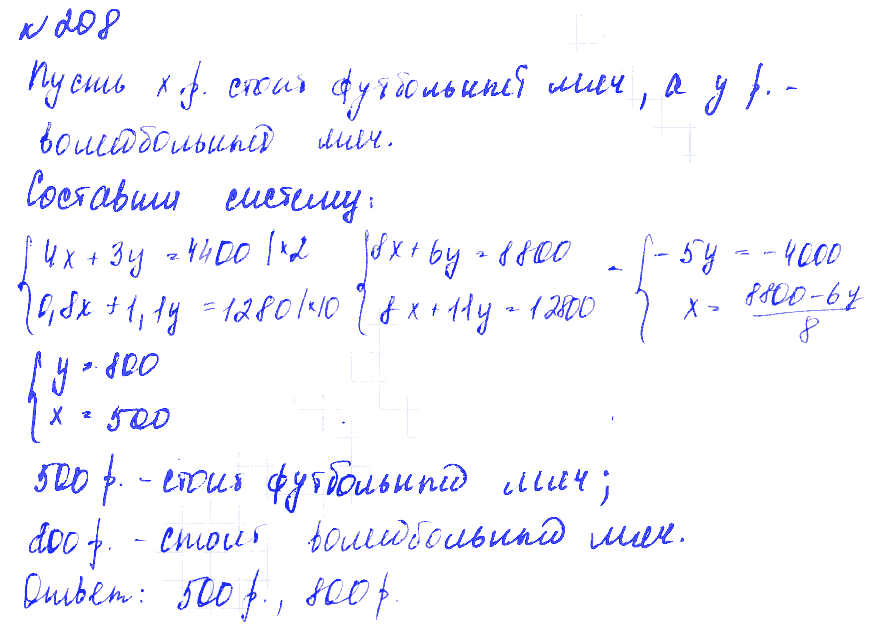 № 208
Пусть х р. стоит футбольный мяч, а у р. -
волейбольный мяч.
Составим систему:
{ 4x + 3y = 4400 |×2 { 8x + 6y = 8800 - { - 5y = -4000
{ 0,8x + 1,1y = 1280 |×10 { 8x + 11y = 12800 { x = (8800 - 6y)/8
{ y = 800
{ x = 500
500 р. - стоит футбольный мяч;
800 р. - стоит волейбольный мяч.
Ответ: 500 р., 800 р.